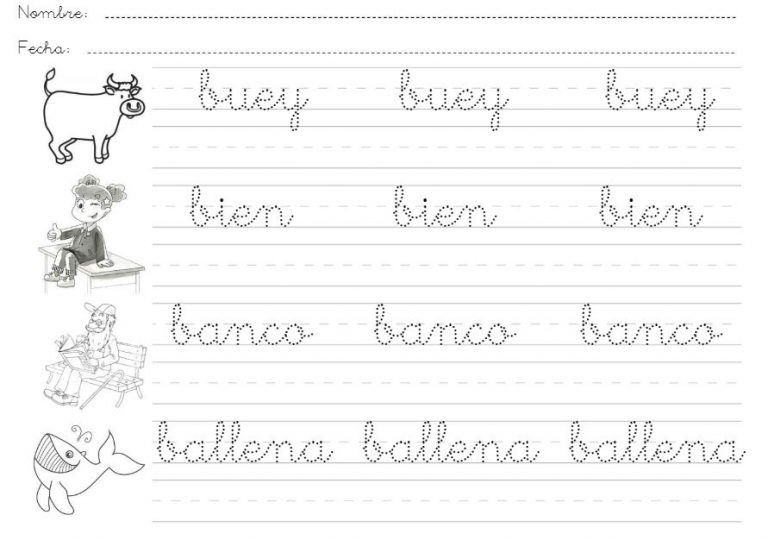 Nombre:
Fecha:
buey buey buey
bien bien bien
banco banco banco
ballena ballena ballena